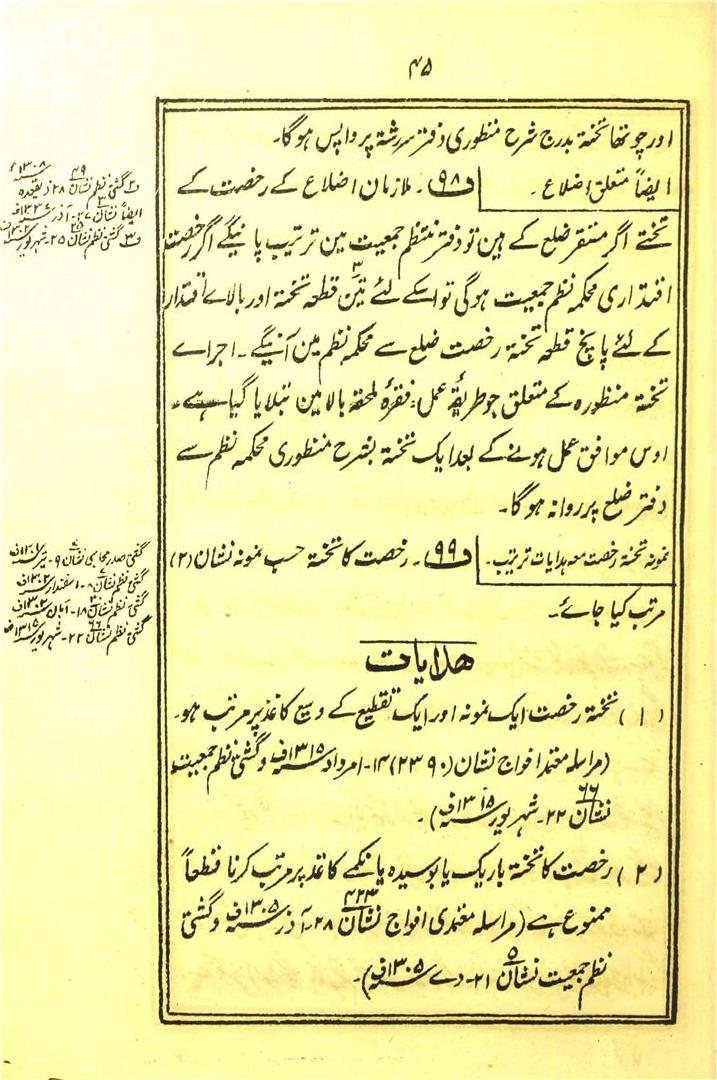 ۴۵
اور چوتھا تختۂ بدرج شرح منظوری دفتر سررشتہ پر واپس ہوگا۔
ایضاً متعلق اضلاع ۔
ف ۹۸ ۔ ملازمان اضلاع کے رخصت کے
تختے اگر مستقر ضلع کے ہین تو دفتر منتظم جمعیت مین ترتیب پائینگے اگر رخصت
اقتداری محکمہ نظم جمعیت ہوگی تو اسکے لئے تین ۳ قطعہ تختۂ اور بالاے اقتدار
کے لئے پانچ قطعہ تختۂ رخصت ضلع سے محکمہ نظم مین آئینگے ۔ اجراے
تختۂ منظورہ کے متعلق جو طریقۂ عمل بفقرۂ ملحقہ بالا مین بتلایا گیا ہے ۔
اوس موافق عمل ہونے کے بعد ایک تختۂ بشرح منظوری محکمہ نظم سے
دفتر ضلع پر روانہ ہوگا ۔
نمونہ تختۂ رخصت معہ ہدایات ترتیب ۔
ف ۹۹ ۔ رخصت کا تختۂ حسب نمونہ نشان (۲)
مرتب کیا جائے ۔
ھدایات
(۱) تختۂ رخصت ایک نمونہ اور ایک تقطیع کے وسیع کاغذ پر مرتب ہو۔
(مراسلہ معتمد افواج نشان (۲۳۹۰) ۱۴- امرداد سنہ ۱۳۱۵ف و گشتی نظم جمعیت
نشان ۶۶ ۲۲- شہریور سنہ ۱۳۱۵ف) ۔
(۲) رخصت کا تختۂ باریک یا بوسیدہ یا نکمے کاغذ پر مرتب کرنا قطعاً
ممنوع ہے (مراسلہ معتمدی افواج نشان ۴۲۳ ۲۸- آذر سنہ ۱۳۰۵ف و گشتی
نظم جمعیت نشان ۵ ۲۱- دے سنہ ۱۳۰۵ف) ۔
گشتی نظم نشان ۴۹ ۲۸ ذیقعدہ سنہ ۱۳۰۸
ایضاً نشان ۲۷- آذر
ف۳ گشتی نظم نشان ۲۵- شہریور
گشتی صدر محاسبی نشان ۹- تیر
گشتی نظم نشان ۸- اسفندار
گشتی نظم نشان ۱۸- آبان
گشتی نظم نشان ۶۶ ۲۲- شہریور سنہ ۱۳۱۵ف